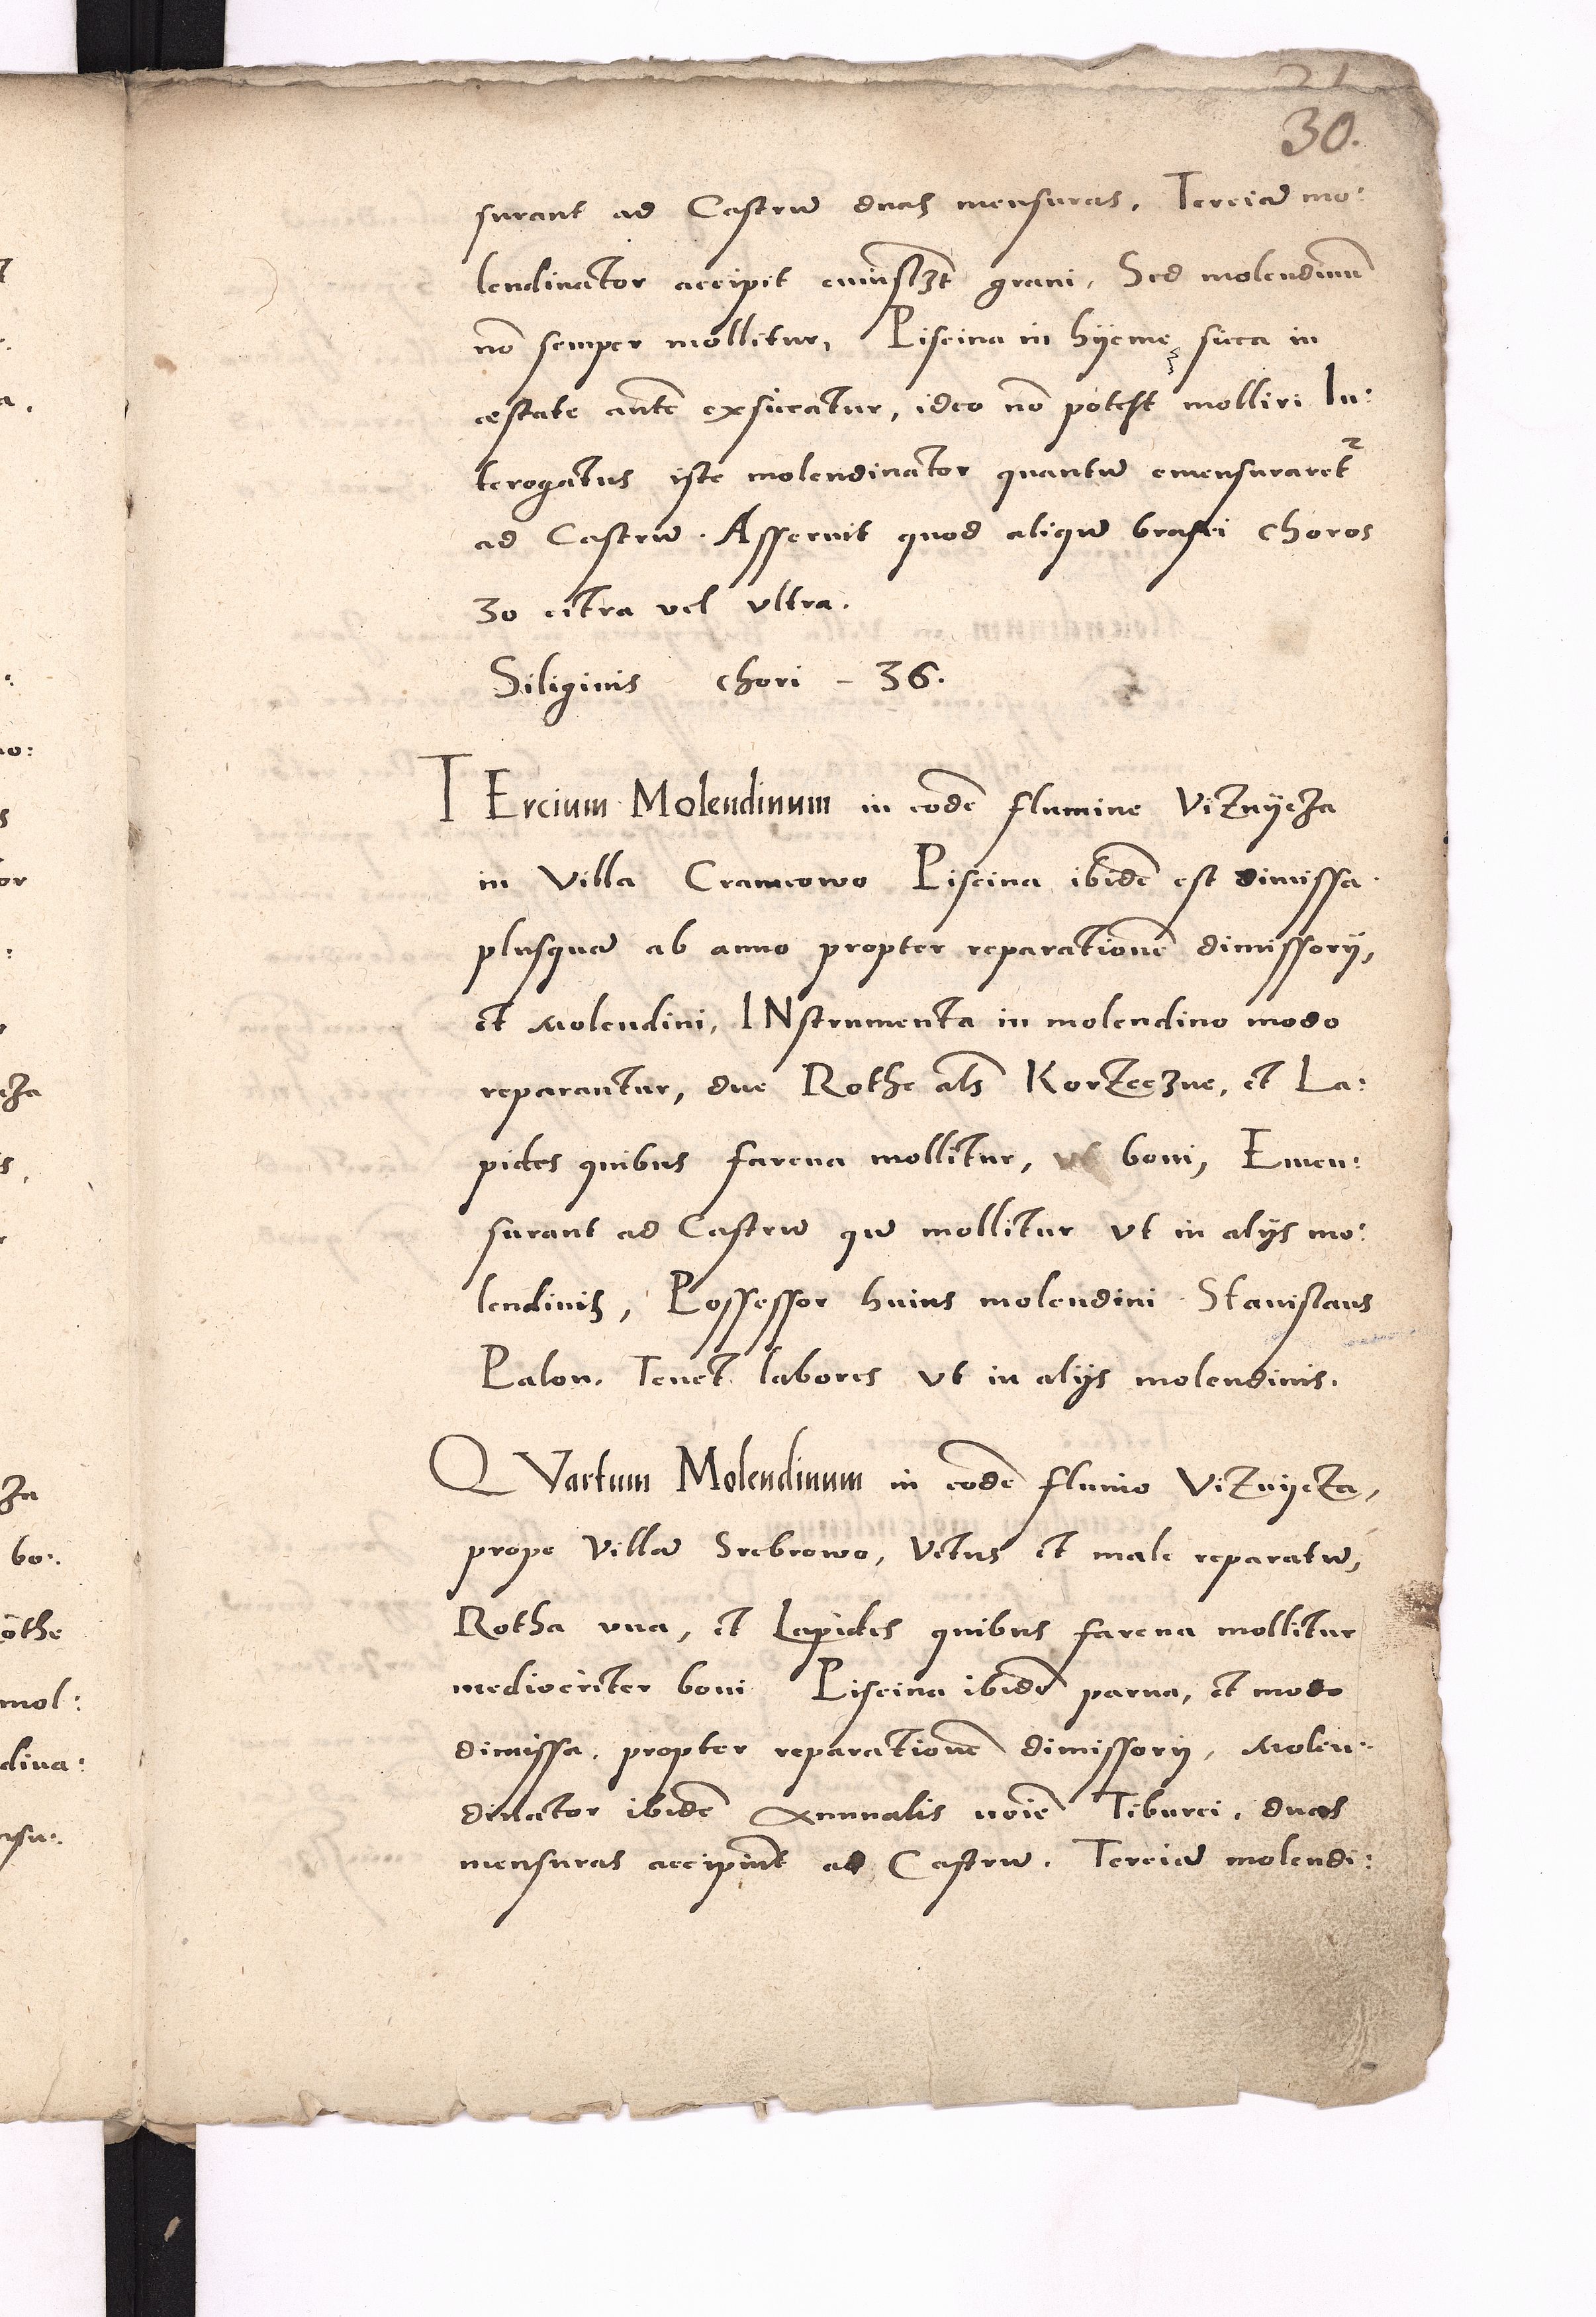 21
30.
surant ad Castrū duas mensuras, Terciā mo:
lendinator accipit cuiuslꝫt grani, Sed molendinū
nō semper mollitur, Piscina in hÿeme sicca in
æstate autē exsiccatur, ideo nō potest molliri In:
terogatus iste molendinator quantū emensuraret²
ad Castrū. Asseruit quod aliqū brasei choros
30 citra vel vltra.
Siliginis chori - 36.
TErcium Molendinum in eodē flumine Viznÿcza
in Villa Cramcowo Piscina ibidē est dimissa
plusquā ab anno propter reparationē dimissorÿ,
et Molendini, INstrumenta in molendino modo
reparantur, due Rothe als Korzeczne, et La:
pides quibus farena mollitur, boni, Emen:
surant ad Castrū qū mollitur vt in alÿs mo:
lendinis, Possessor huius molendini Stanislaus
Palon. Tenet labores vt in alÿs molendinis.
QVartum Molendinum in eodē fluuio Viznÿcza,
prope Villā Srebrowo, Vetus et male reparatū,
Rotha vna, et Lapides quibus farena mollitur
mediocriter boni Piscina ibidē parua, et modo
dimissa, propter reparationē dimissorÿ, Molen:
dinator ibidē Annualis noīe Tiburci, duas
mensuras accipiūt ad Castrū. Terciā molendi: